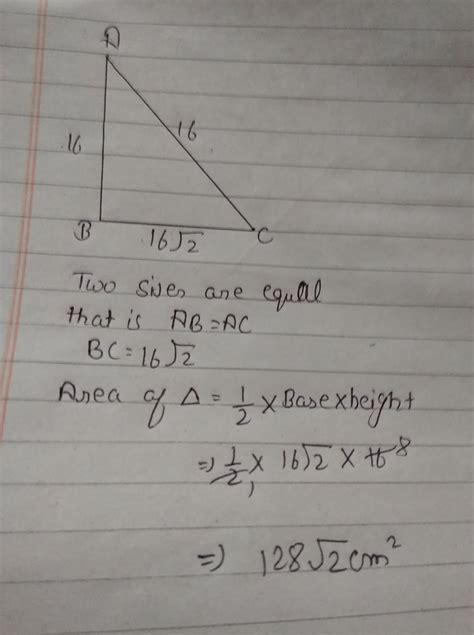 A
16
16
B
16√2
C
Two sides are equal
that is AB=AC
BC=16√2
Area of Δ = 1/2 × Base×height
=) 1/2 × 16√2 × 16 8
1
=) 128√2 cm²